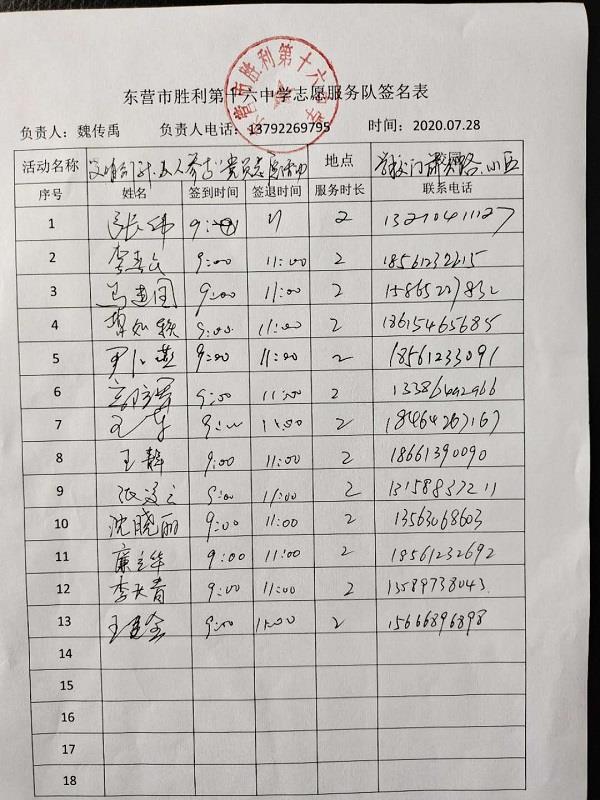 东营市胜利第十六中学志愿服务队签名表
负责人：魏传禹 负责人电话：13792269795 时间：2020.07.28
活动名称 文明创城 人人参与 党员志愿活动 地点 学校门前 路 小区
序号 姓名 签到时间 签退时间 服务时长 联系电话
1 张伟 9:00 11 2 13210411127
2 9:00 11:00 2 18561232615
3 马建国 9:00 11:00 2
4 9:00 11:00 2 18615465685
5 9:00 11:00 2 18561233091
6 9:00 11:00 2
7 王 9:00 11:00 2 18464267167
8 王静 9:00 11:00 2 18661390090
9 张 9:00 11:00 2
10 沈晓丽 9:00 11:00 2 13563068603
11 廉立华 9:00 11:00 2 18561232692
12 李天青 9:00 11:00 2 13589738043
13 王 9:00 11:00 2 15666896898
14
15
16
17
18